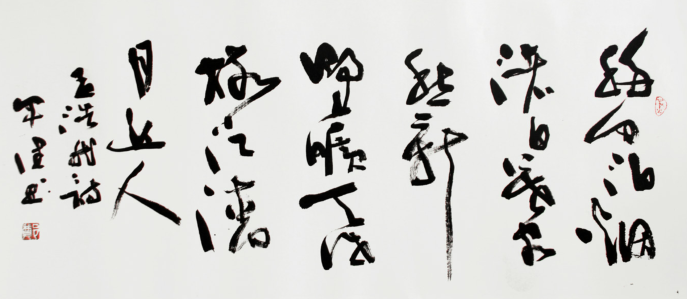 移舟泊烟
渚日暮客
愁新
野曠天低
树江清
月近人
孟浩然詩
书